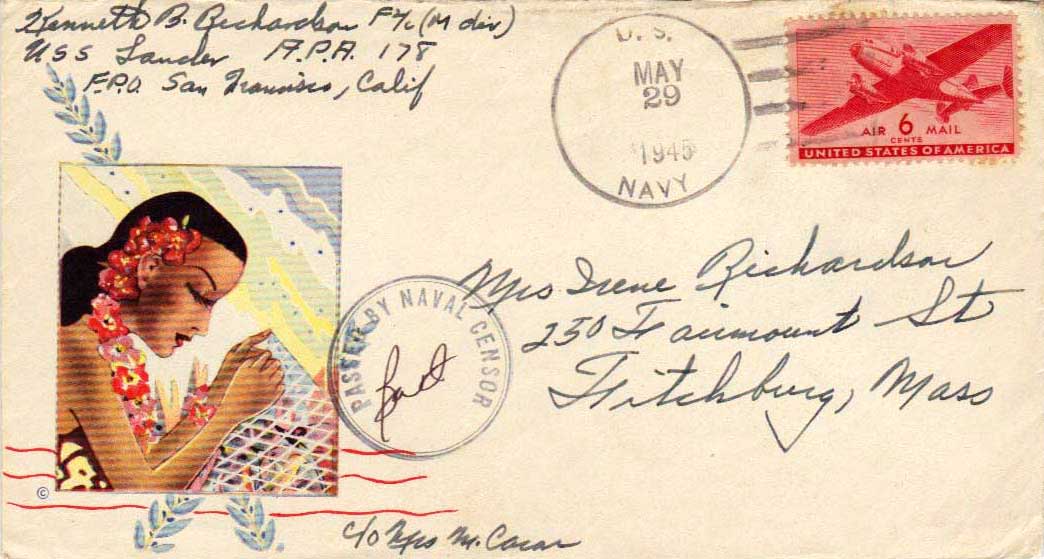 Kenneth B. Richardson F 2/c (M div)
USS Lander A.P.A. 178
F.P.O. San Francisco, Calif
U.S.
MAY
29
1945
NAVY
AIR 6 MAIL
CENTS
UNITED STATES OF AMERICA
PASSED BY NAVAL CENSOR
Mrs Irene Richardson
250 Fairmount St
Fitchburg, Mass
©
c/o Mrs M.